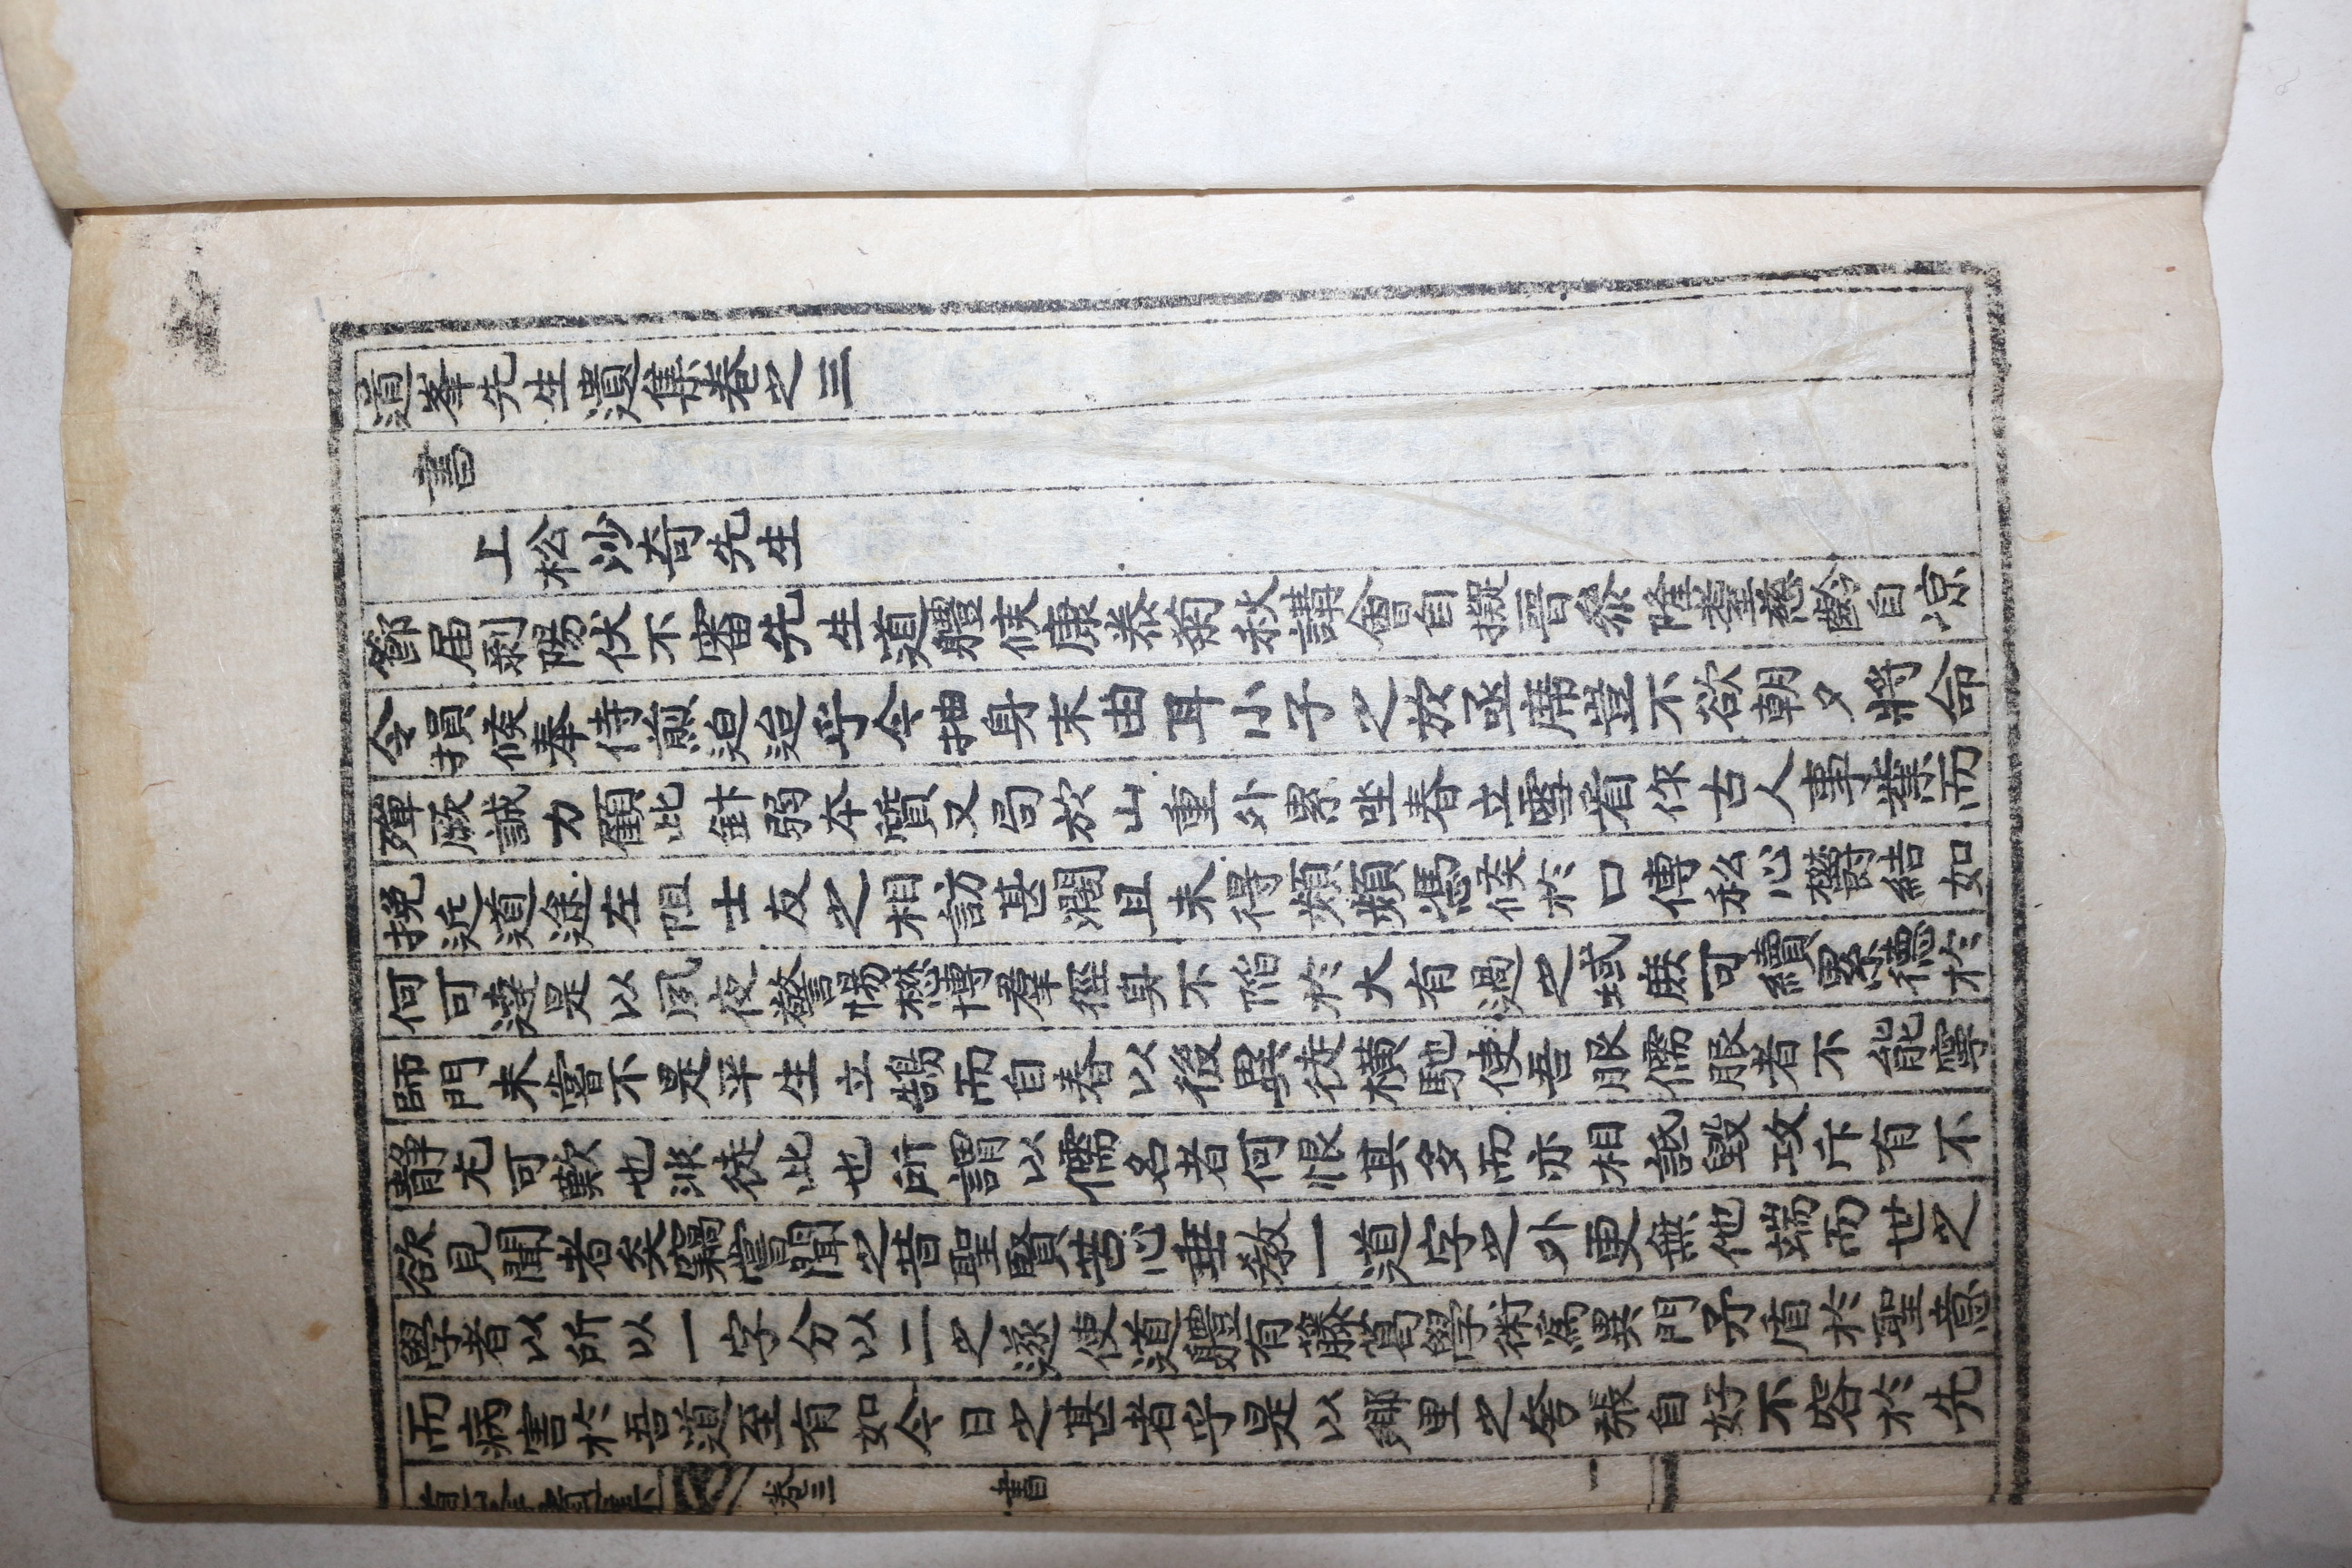 道峯先生遺集卷之三
書
上松沙奇先生
節届剥陽伏不審先生道軆候康泰菊秋講會自擬晋叅隆耋慈齡自凉
令損候奉侍煎迫迨乎今抽身末由耳小子之於函席豈不欲朝夕將命
殫厥誠力顧此弱本質又局於山重外累坐春立雪看作古人事業而
挽近道途左阻士友之相訪甚濶且未得頻頻憑候於口傳私心欝結如
何可達是以夙夜警惕懋博羣徑身不陷於大有過之域庶可續累德於
師門未嘗不是平生立鵠而自春以後異徒橫馳使吾服儒服者不能寧
静尤可歎也非徒此也所謂以儒名者何恨其多而亦相詆毁攻斥有不
欲見聞者矣竊嘗聞之昔聖賢苦心垂敎一道字之外更無他端而世之
學者以所以一字分以二之遂使道軆有藤葛學術爲異門矛盾於聖意
而病害於吾道至有如今日之甚者乎是以鄉里之夸張自好不容於先
卷三 書 一